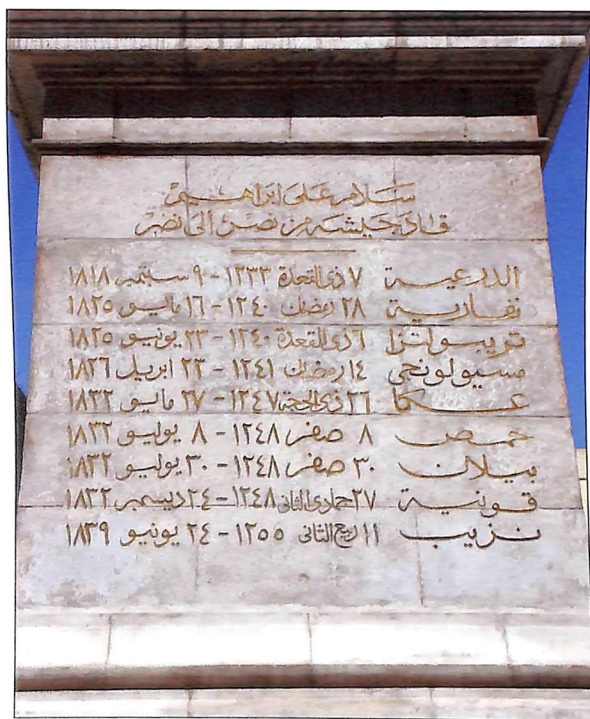 سلام على ابراهيم
قاد جيشه من نصر الى نصر
الدرعية ٧ ذى القعدة ١٢٣٣ - ٩ سبتمبر ١٨١٨
نفارية ٢٨ رمضان ١٢٤٠ - ١٦ مايو ١٨٢٥
تريبولتزا ٦ ذى القعدة ١٢٤٠ - ٢٣ يونيو ١٨٢٥
مسيولونجى ١٤ رمضان ١٢٤١ - ٢٣ ابريل ١٨٢٦
عكا ٢٦ ذى الحجة ١٢٤٧ - ٢٧ مايو ١٨٣٢
حمص ٨ صفر ١٢٤٨ - ٨ يوليو ١٨٣٢
بيلان ٣٠ صفر ١٢٤٨ - ٣٠ يوليو ١٨٣٢
قونية ٢٧ جمادى الثانى ١٢٤٨ - ٢٤ ديسمبر ١٨٣٢
نزيب ١١ ربيع الثانى ١٢٥٥ - ٢٤ يونيو ١٨٣٩